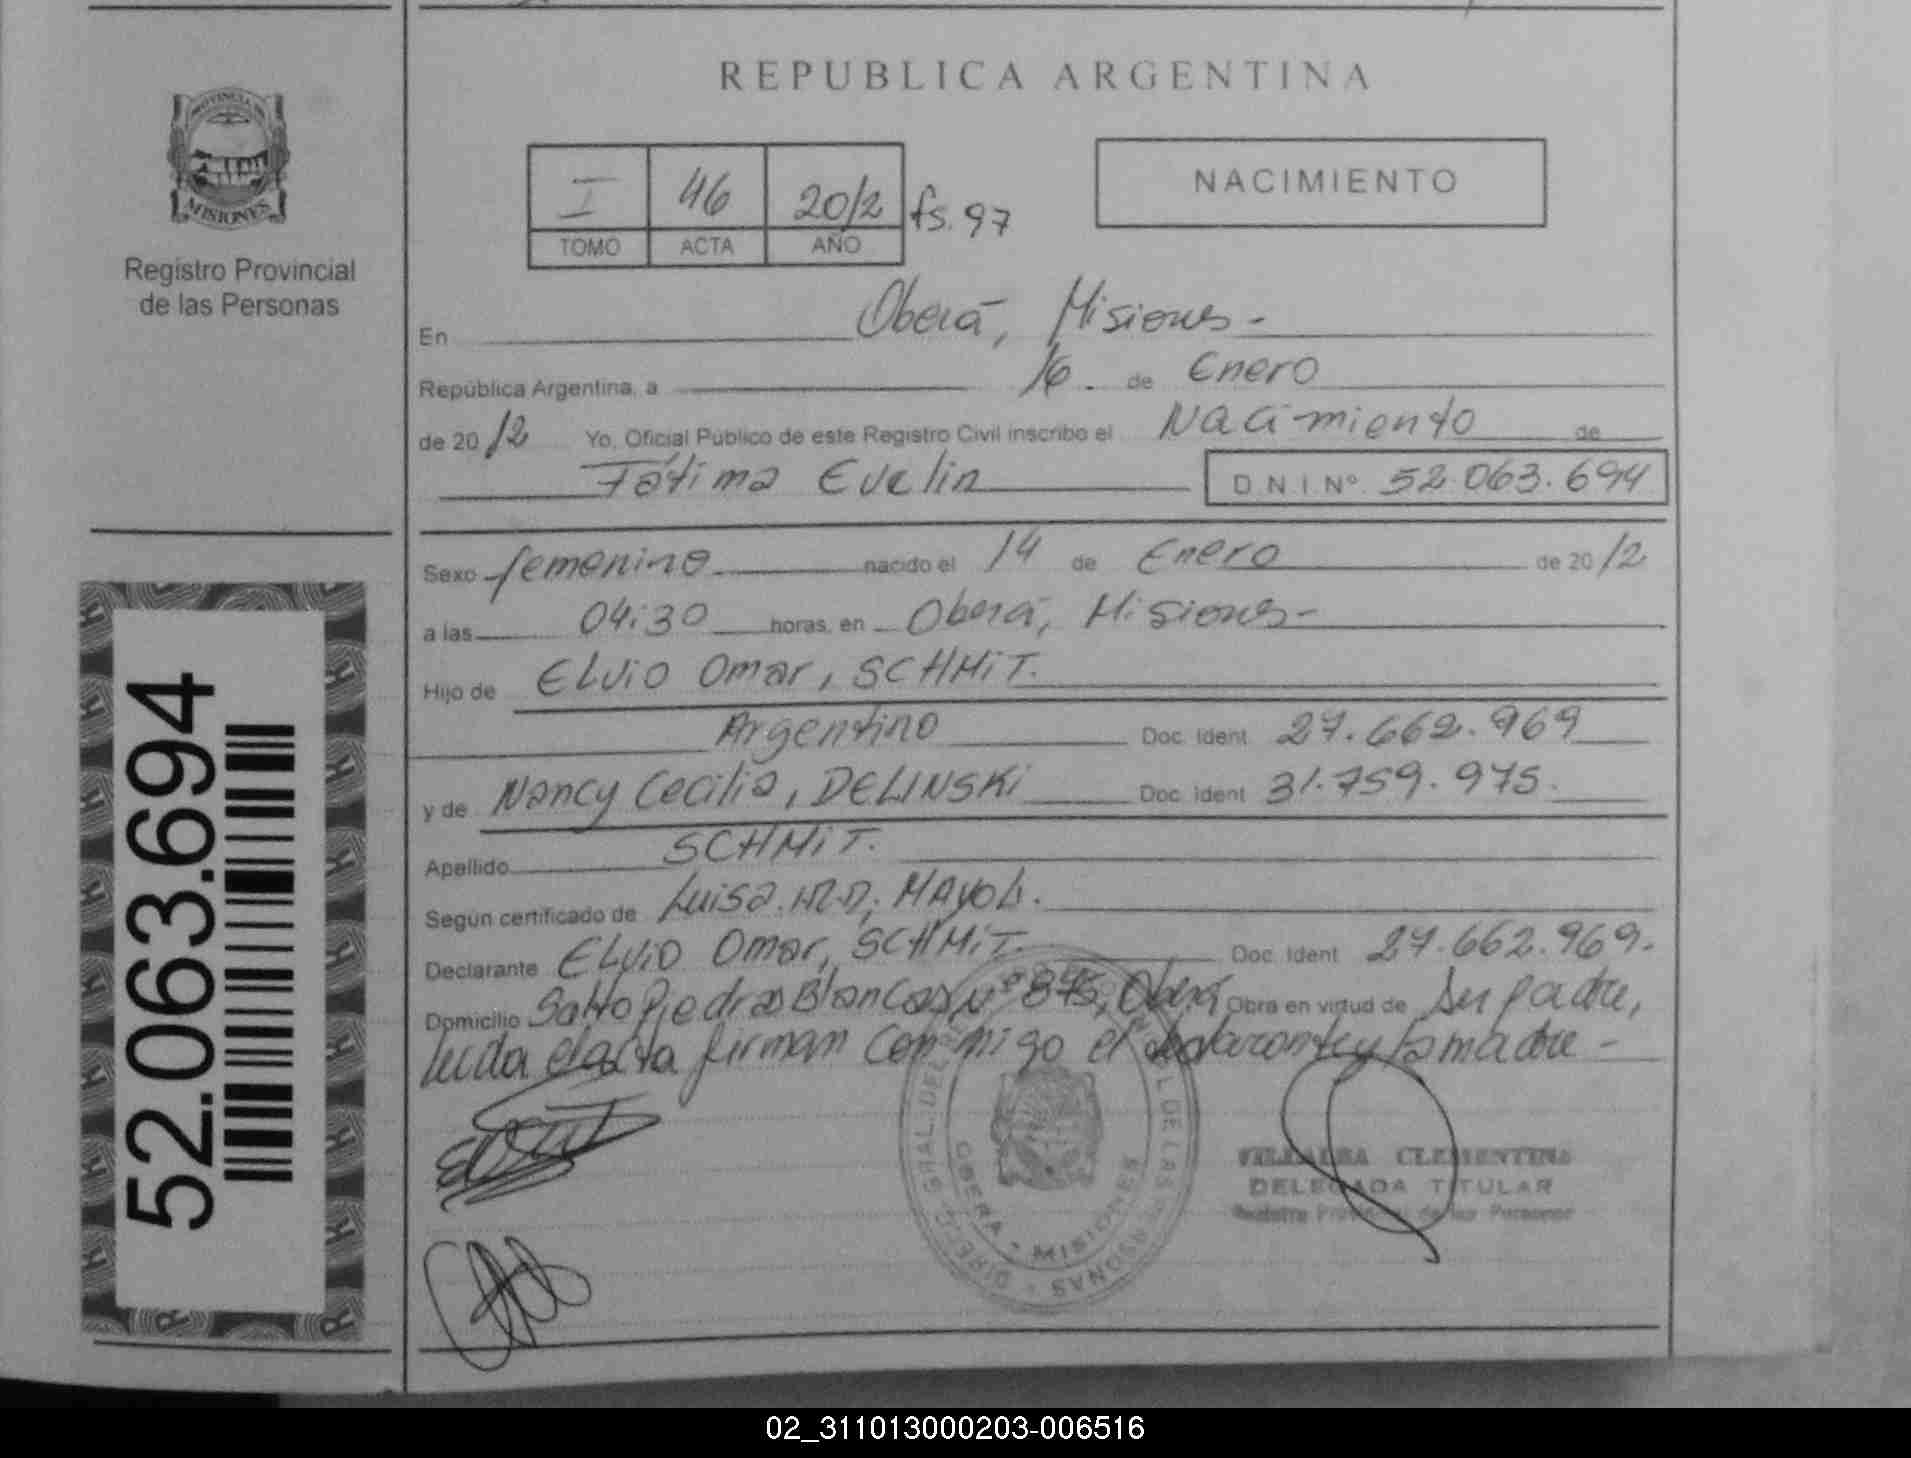 REPUBLICA ARGENTINA
PROVINCIA DE
MISIONES
Registro Provincial
de las Personas
I 46 20/2 fs. 97
TOMO ACTA AÑO
NACIMIENTO
En Oberá, Misiones -
República Argentina, a 16. de Enero
de 20 12 Yo, Oficial Público de este Registro Civil inscribo el Nacimiento de
Fátima Evelin D.N.I. Nº 52.063.694
Sexo femenino nacido el 14 de Enero de 20 12
a las 04:30 horas, en Oberá, Misiones -
Hijo de ELVIO Omar, SCHMIT.
Argentino Doc. Ident 27.662.969
y de Nancy Cecilia, DELINSKI Doc. Ident 31.759.975.
Apellido SCHMIT.
Según certificado de Luisa. MAYOL.
Declarante ELVIO Omar, SCHMIT. Doc. Ident 27.662.969.
Domicilio Salto Piedras Blancas Nº 875, Oberá Obra en virtud de su padre,
leída el acta firman conmigo el declarante y la madre -
52.063.694
OBERA - MISIONES
VILLALBA CLEMENTINA
DELEGADA TITULAR
Registro Provincial de las Personas
02_311013000203-006516